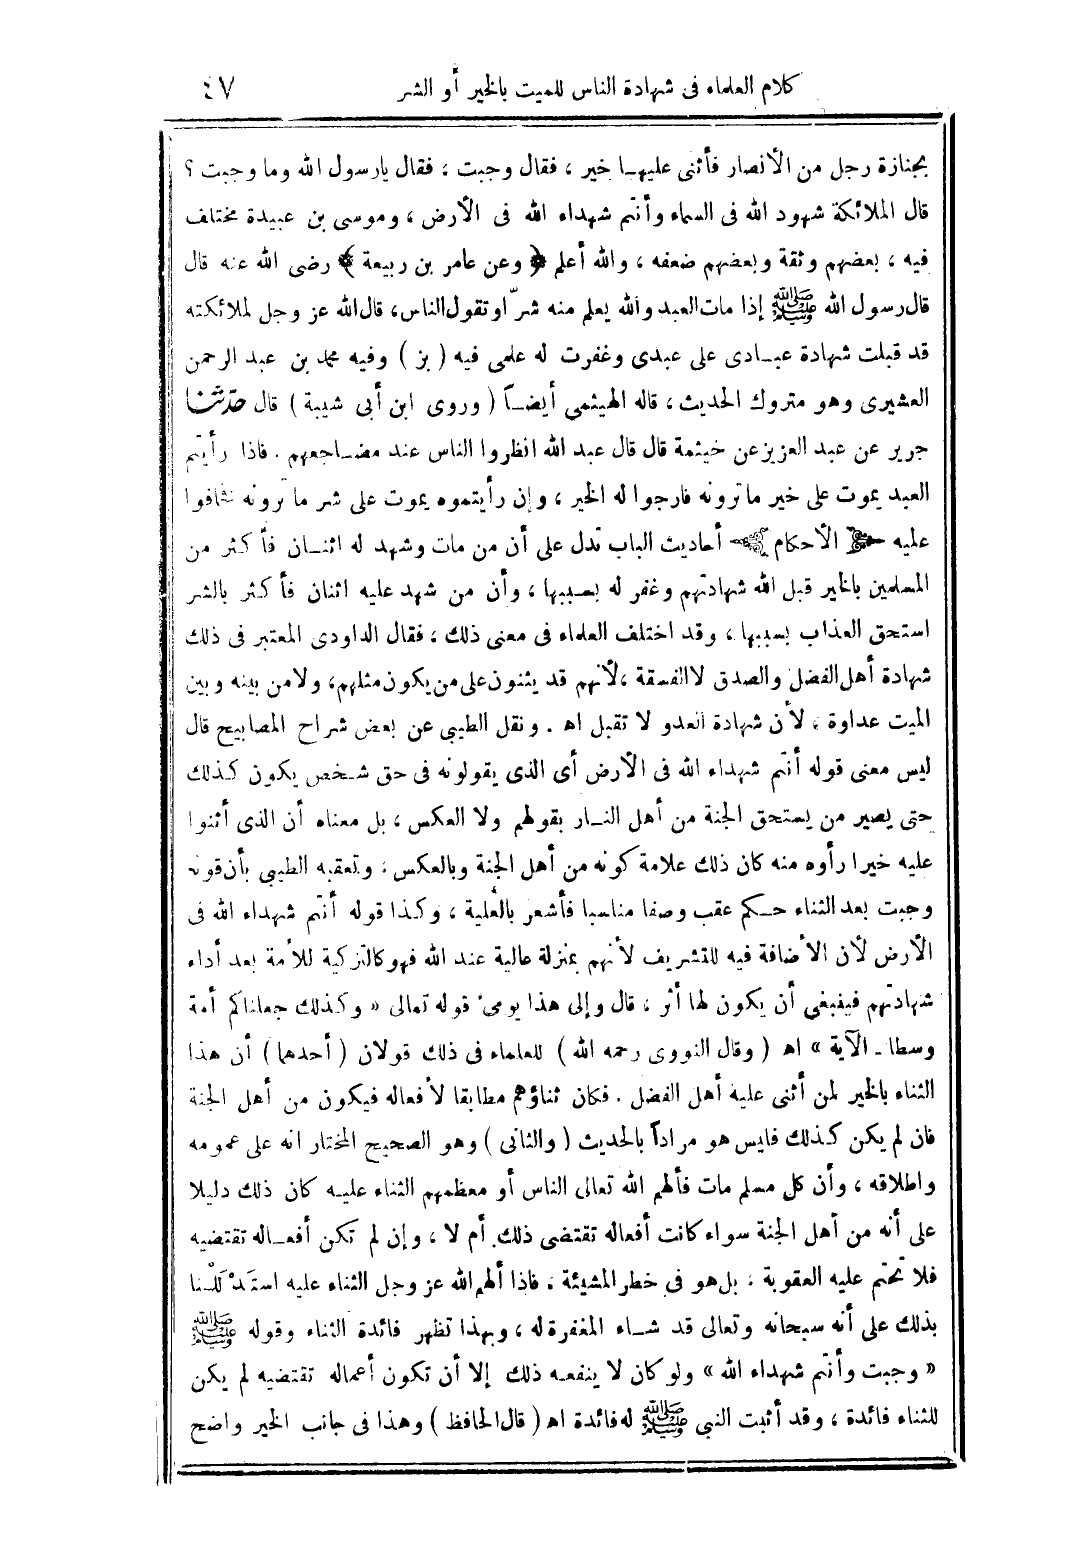 كلام العلماء فى شهادة الناس للميت بالخير أو الشر ٤٧
بجنازة رجل من الأنصار فأثنى عليهـا خير ، فقال وجبت ، فقال يارسول الله وما وجبت ؟
قال الملائكة شهود الله فى السماء وأنتم شهداء الله فى الأرض ، وموسى بن عبيدة مختلف
فيه ، بعضهم وثقة وبعضهم ضعفه ، والله أعلم ﴿ وعن عامر بن ربيعة ﴾ رضى الله عنه قال
قال رسول الله ﷺ إذا مات العبد والله يعلم منه شرّا وتقول الناس ، قال الله عز وجل لملائكته
قد قبلت شهادة عبـادى على عبدى وغفرت له علمى فيه ( بز ) وفيه محمد بن عبد الرحمن
العشيرى وهو متروك الحديث ، قاله الهيثمى أيضـاً ( وروى ابن أبى شيبة ) قال حدّثنا
جرير عن عبد العزيز عن خيثمة قال قال عبد الله انظروا الناس عند مضـاجعهم . فاذا رأيتم
العبد يموت على خير ما ترونه فارجوا له الخير ، وإن رأيتموه يموت على شر ما ترونه فخافوا
عليه ﴿ الأحكام ﴾ أحاديث الباب تدل على أن من مات وشهد له اثنـان فأكثر من
المسلمين بالخير قبل الله شهادتهم وغفر له بسببها ، وأن من شهد عليه اثنان فأكثر بالشر
استحق العذاب بسببها ، وقد اختلف العلماء فى معنى ذلك ، فقال الداودى المعتبر فى ذلك
شهادة أهل الفضل والصدق لا الفسقة ، لأنهم قد يثنون على من يكون مثلهم ، ولا من بينه وبين
الميت عداوة ، لأن شهادة العدو لا تقبل اه . ونقل الطيبي عن بعض شراح المصابيح قال
ليس معنى قوله أنتم شهداء الله فى الأرض أى الذى يقولونه فى حق شخص يكون كذلك
حتى يصير من يستحق الجنة من أهل النـار بقولهم ولا العكس ، بل معناه أن الذى أثنوا
عليه خيرا رأوه منه كان ذلك علامة كونه من أهل الجنة وبالعكس ، وتعقبه الطيبي بأن قوله
وجبت بعد الثناء حـكم عقب وصفا مناسبا فأشعر بالعلية ، وكذا قوله أنتم شهداء الله فى
الأرض لأن الأضافة فيه للتشريف لأنهم بمنزلة عالية عند الله فهو كالتزكية للأمة بعد أداء
شهادتهم فينبغي أن يكون لها أثر ، قال وإلى هذا يومىء قوله تعالى « وكذلك جعلناكم أمة
وسطا ـ الآية » اه ( وقال النووى رحمه الله ) للعلماء فى ذلك قولان ( أحدها ) أن هذا
الثناء بالخير لمن أثنى عليه أهل الفضل . فكان ثناؤهم مطابقا لأفعاله فيكون من أهل الجنة
فان لم يكن كذلك فليس هو مراداً بالحديث ( والثانى ) وهو الصحيح المختار انه على عمومه
واطلاقه ، وأن كل مسلم مات فألهم الله تعالى الناس أو معظمهم الثناء عليـه كان ذلك دليلا
على أنه من أهل الجنة سواء كانت أفعاله تقتضى ذلك أم لا ، وإن لم تكن أفعـاله تقتضيه
فلا تحتم عليه العقوبة ، بل هو فى خطر المشيئة ، فاذا ألهم الله عز وجل الثناء عليه استدللنا
بذلك على أنه سبحانه وتعالى قد شـاء المغفرة له ، وبهذا تظهر فائدة الثناء وقوله ﷺ
« وجبت وأنتم شهداء الله » ولو كان لا ينفعـه ذلك إلا أن تكون أعماله تقتضيه لم يكن
للثناء فائدة ، وقد أثبت النبي ﷺ له فائدة اه ( قال الحافظ ) وهذا فى جانب الخير واضح